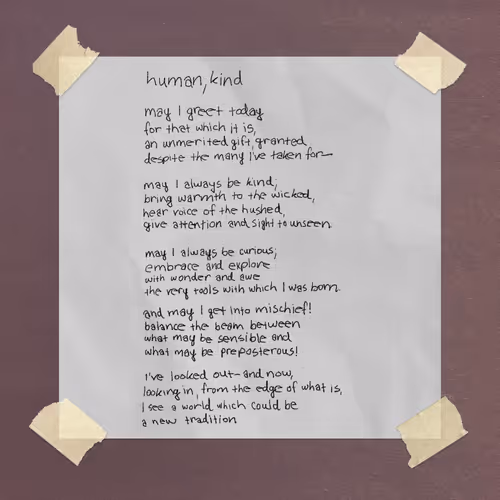 human, kind
may I greet today
for that which it is,
an unmerited gift, granted
despite the many I've taken for—
may I always be kind;
bring warmth to the wicked,
hear voice of the hushed,
give attention and sight to unseen.
may I always be curious;
embrace and explore
with wonder and awe
the very tools with which I was born.
and may I get into mischief!
balance the beam between
what may be sensible and
what may be preposterous!
I've looked out—and now,
looking in, from the edge of what is,
I see a world which could be
a new tradition